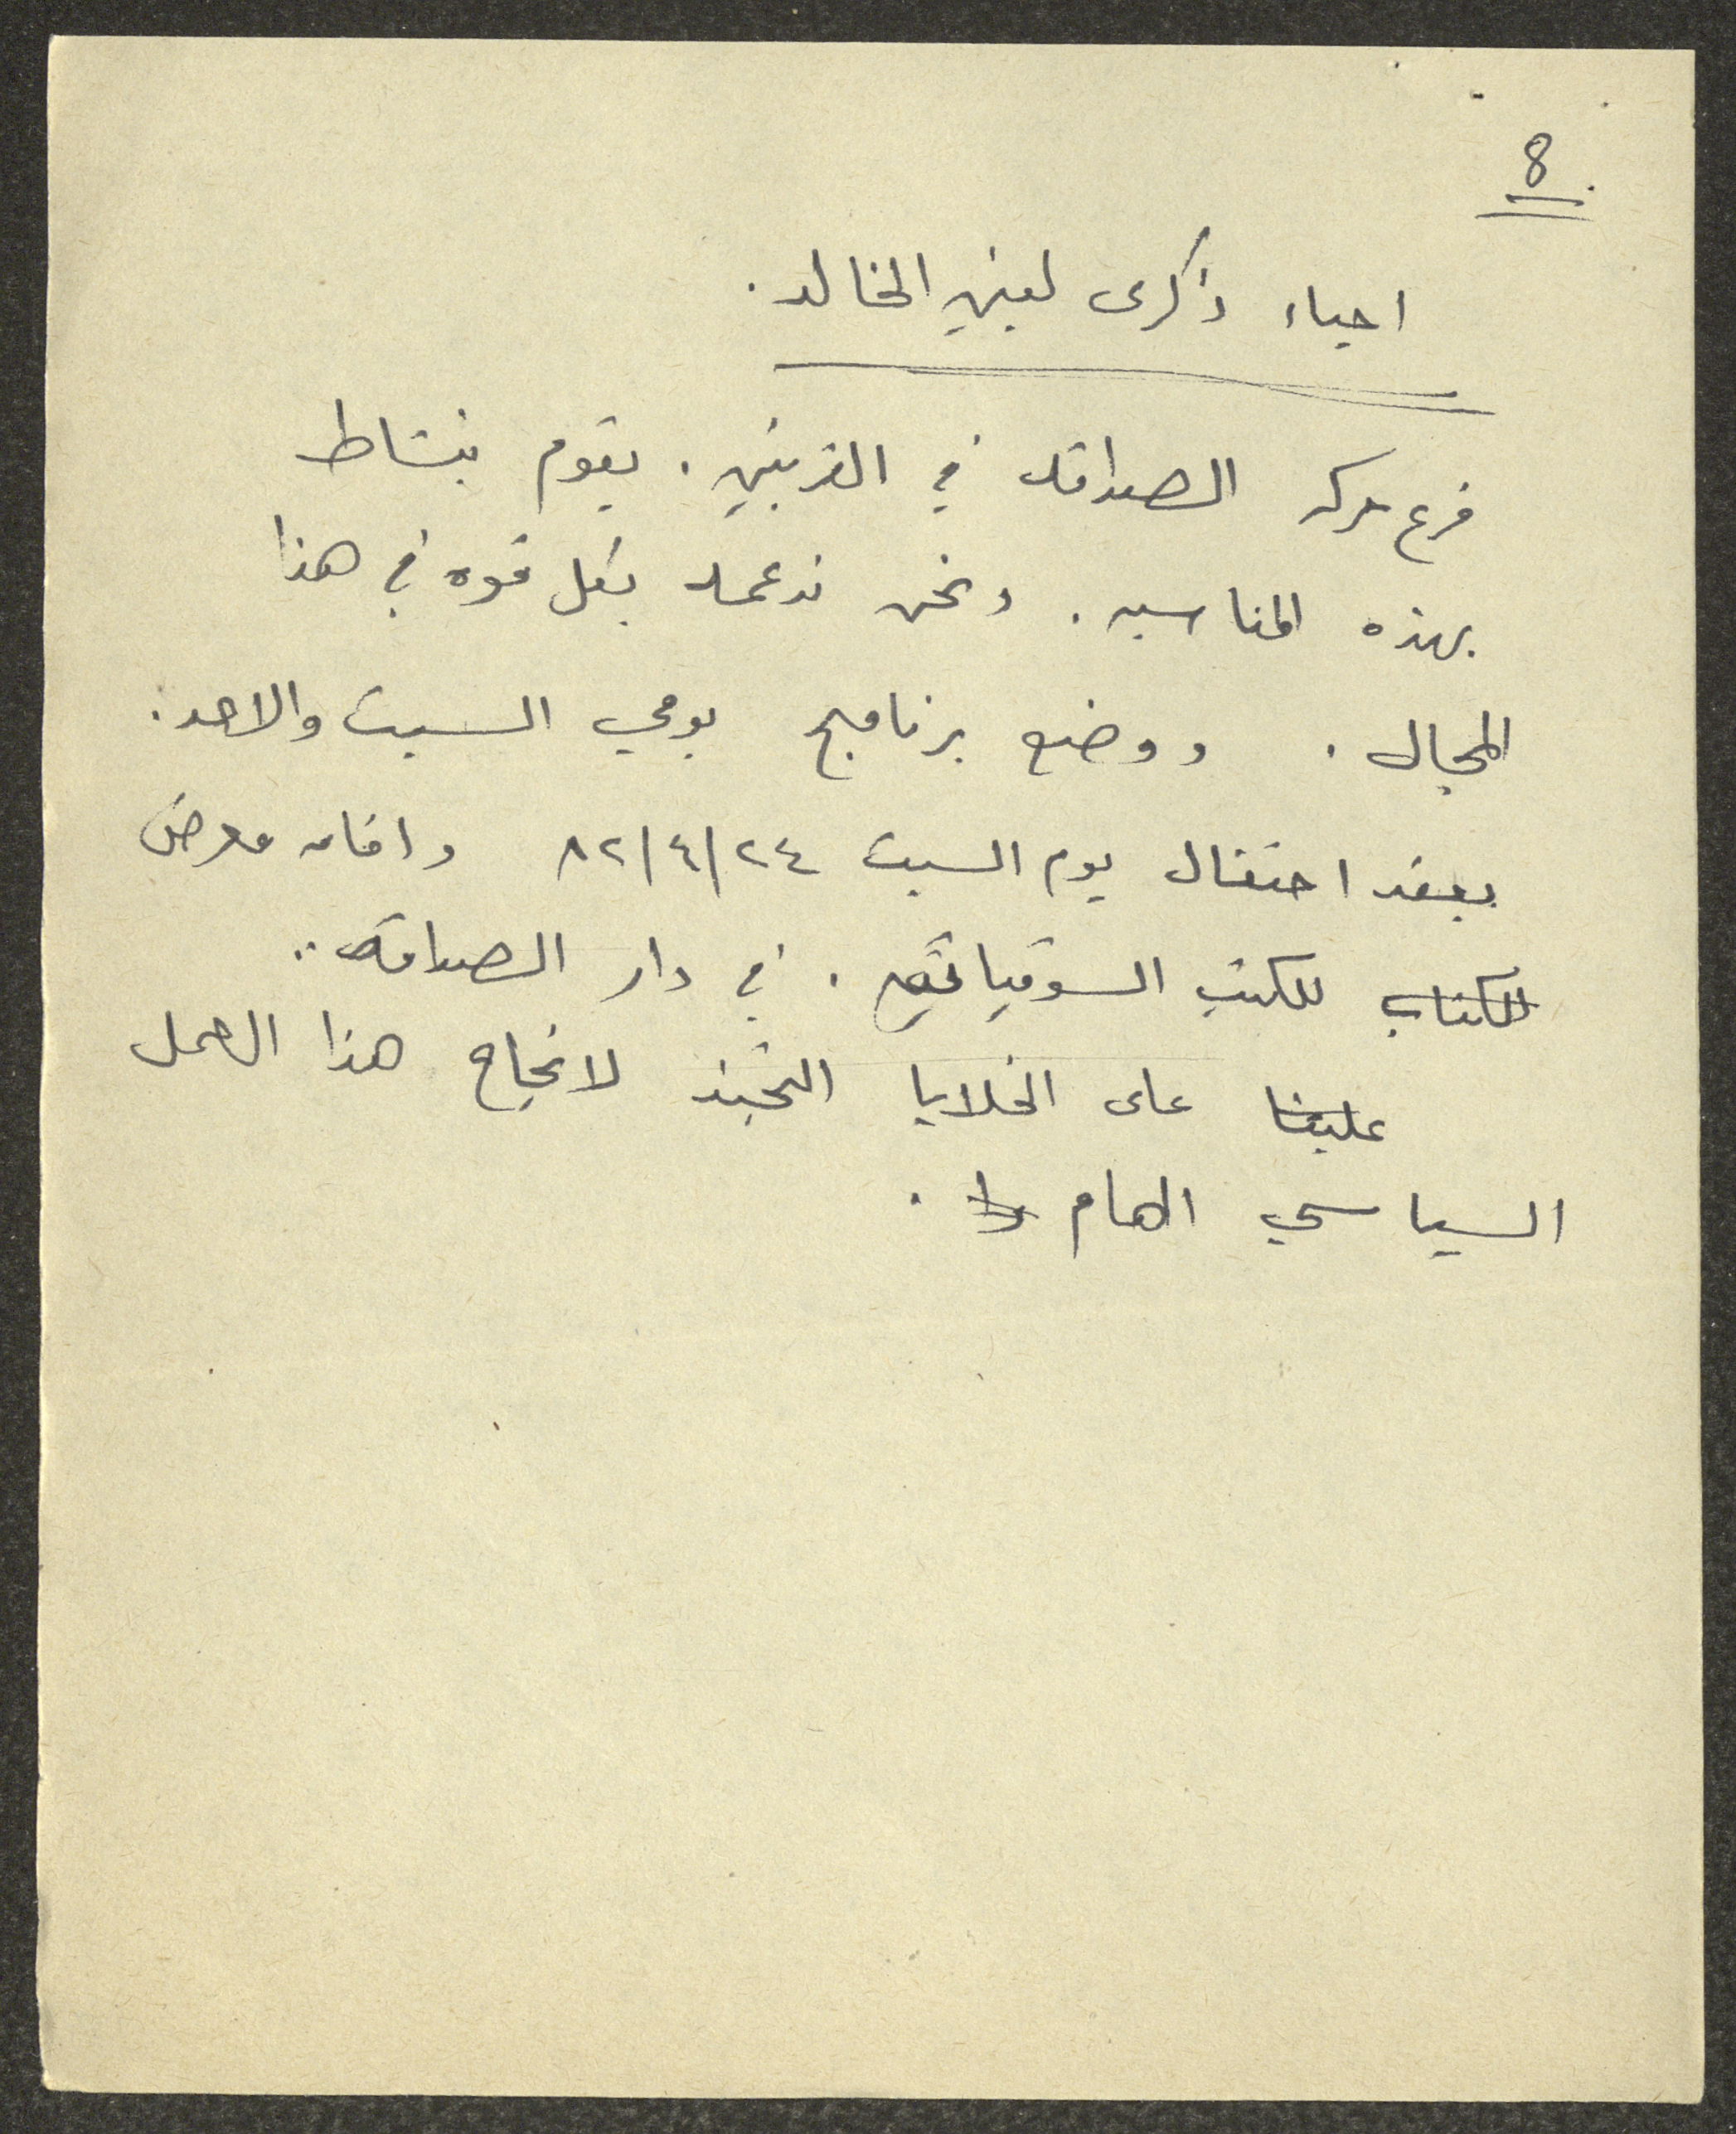 8
احياء ذكرى لينين الخالد.
فرع حركه الصداقه في القريتين. يقوم بنشاط
بهذه المناسبه. ونحن ندعمه بكل قوه في هذا
المجال. ووضع برنامج يومي السبت والاحد.
بعقد احتفال يوم السبت ٨٢/٤/٢٤ واقامه معرض
للكتاب للكتب السوفياتيه. في دار الصداقه..
علينا على الخلايا التجند لانجاح هذا العمل
السياسي الهام.